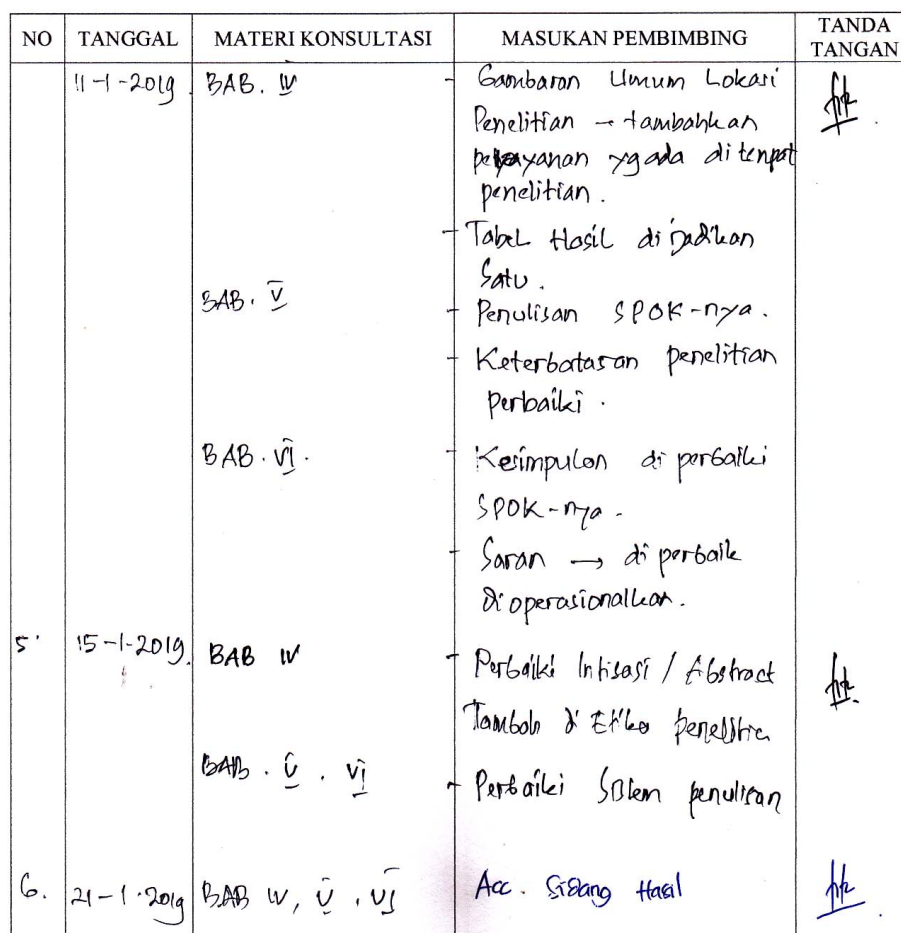 NO TANGGAL MATERI KONSULTASI MASUKAN PEMBIMBING TANDA TANGAN
11-1-2019 BAB. IV - Gambaran Umum Lokasi
Penelitian → tambahkan
pelayanan yg ada di tempat
penelitian.
- Tabel Hasil di jadikan
Satu.
BAB. V - Penulisan SPOK-nya.
- Keterbatasan penelitian
perbaiki.
BAB. VI. - Kesimpulan di perbaiki
SPOK-nya.
- Saran → di perbaik
di operasionalkan.
5. 15-1-2019. BAB IV - Perbaiki Intisasi / Abstract
Tambah di Etika penelitia
BAB. V. VI - Perbaiki penulisan
6. 21-1-2019 BAB IV, V, VI Acc. Sidang Hasil